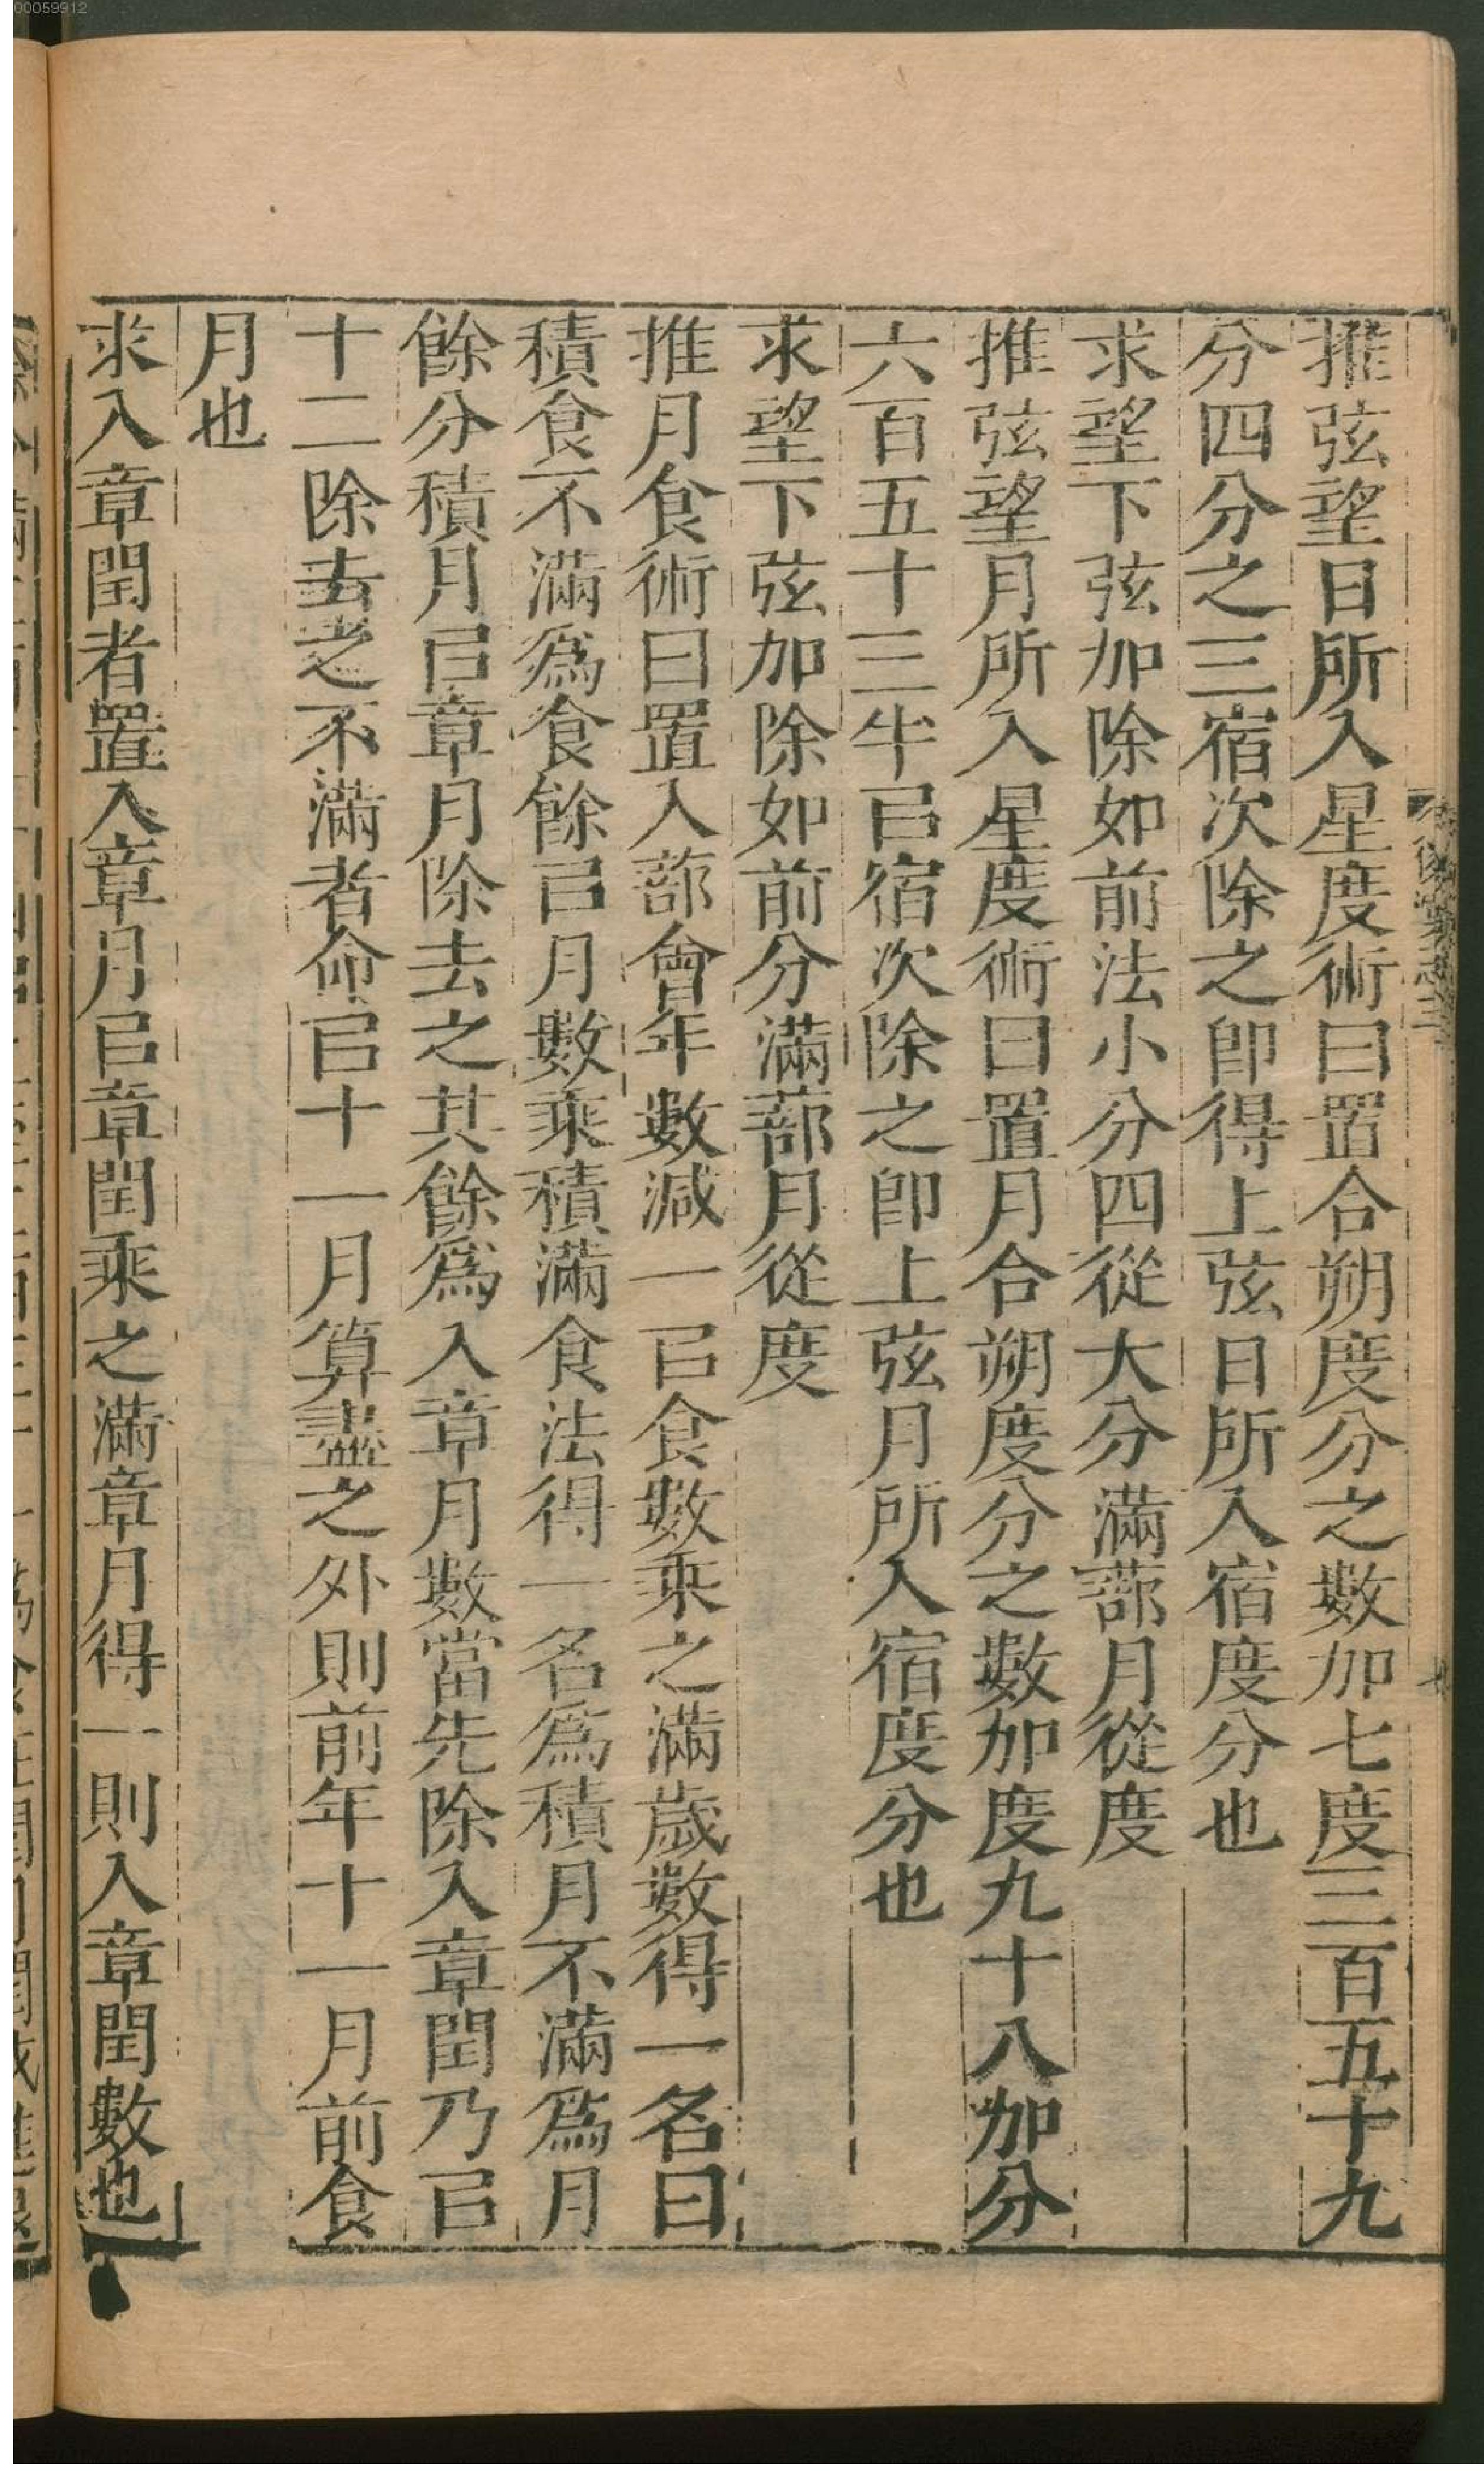 00059912
推弦望日所入星度術曰置合朔度分之數加七度三百五十九
分四分之三宿次除之卽得上弦日所入宿度分也
求望下弦加除如前法小分四從大分滿蔀月從度
推弦望月所入星度術曰置月合朔度分之數加度九十八加分
六百五十三半㠯宿次除之卽上弦月所入宿度分也
求望下弦加除如前分滿蔀月從度
推月食術曰置入蔀會年數減一㠯食數乘之滿歲數得一名曰
積食不滿爲食餘㠯月數乘積滿食法得一名爲積月不滿爲月
餘分積月㠯章月除去之其餘爲入章月數當先除入章閏乃㠯
十二除去之不滿者命㠯十一月算盡之外則前年十一月前食
月也
求入章閏者置入章月㠯章閏乘之滿章月得一則入章閏數也